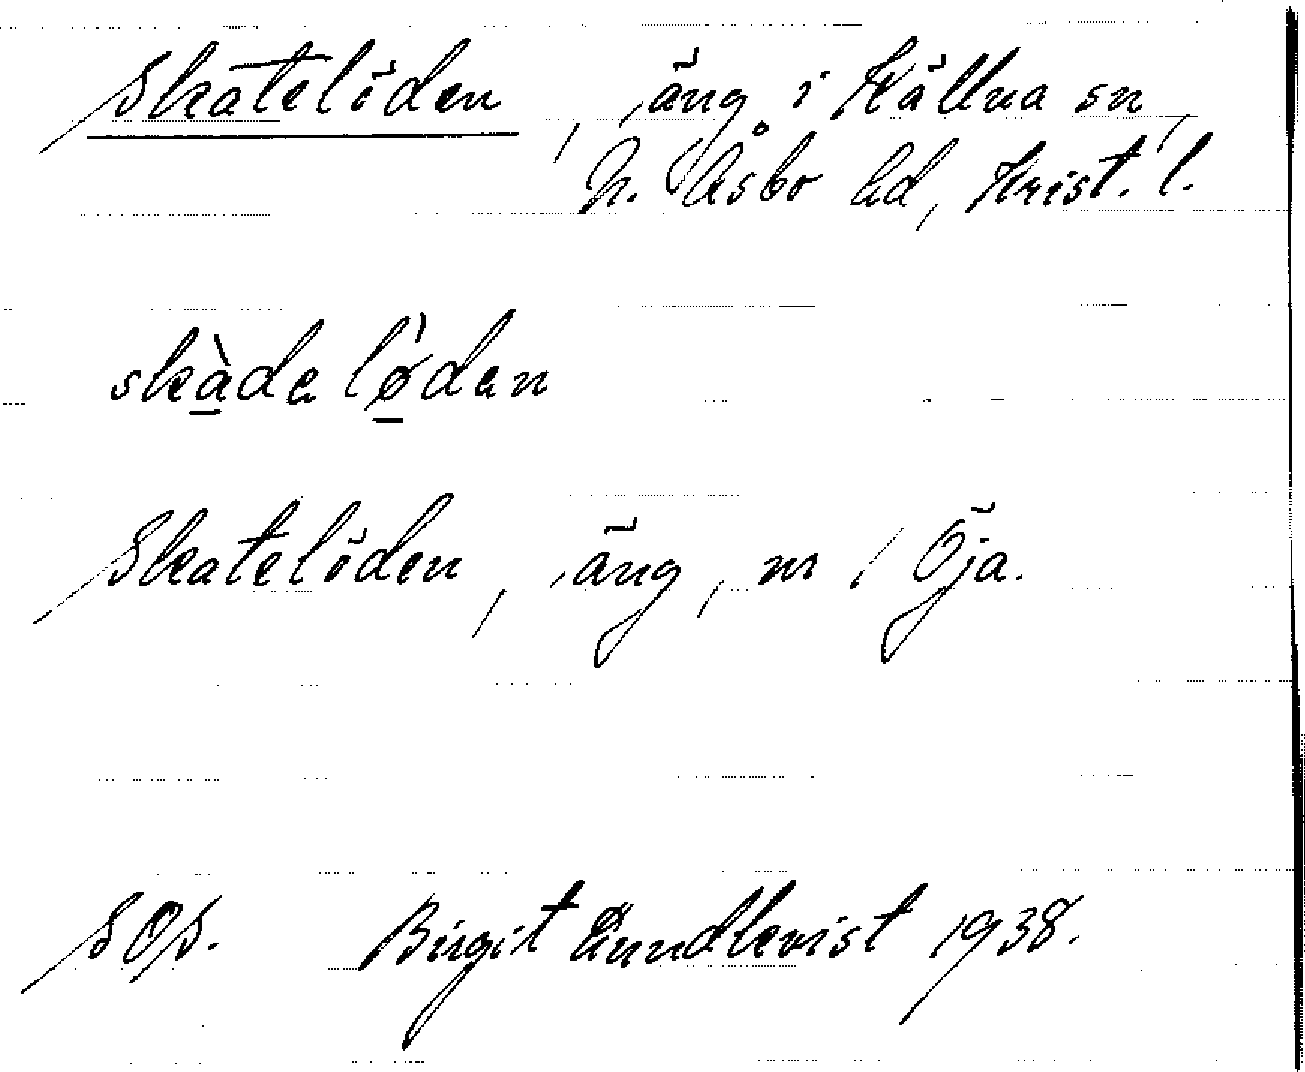 Skatelöden, äng i Källna sn,
N. Åsbo hd, Krist. l.
skàdelø̀den
Skatelöden, äng, nr 1 Öja.
SOS. Birgit Lundkvist 1938.